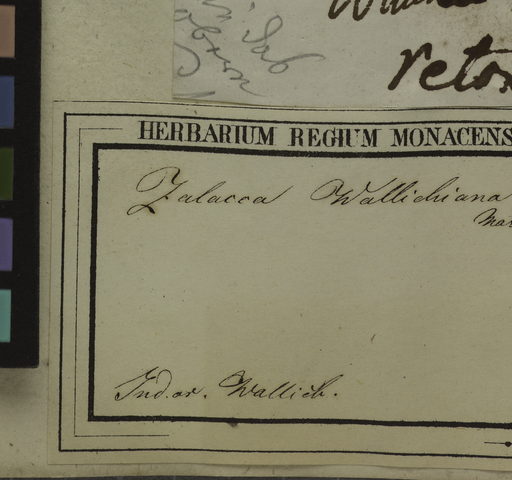 reton
HERBARIUM REGIUM MONACENS
Zalacca Wallichiana
Mar
Ind. or. Wallich.